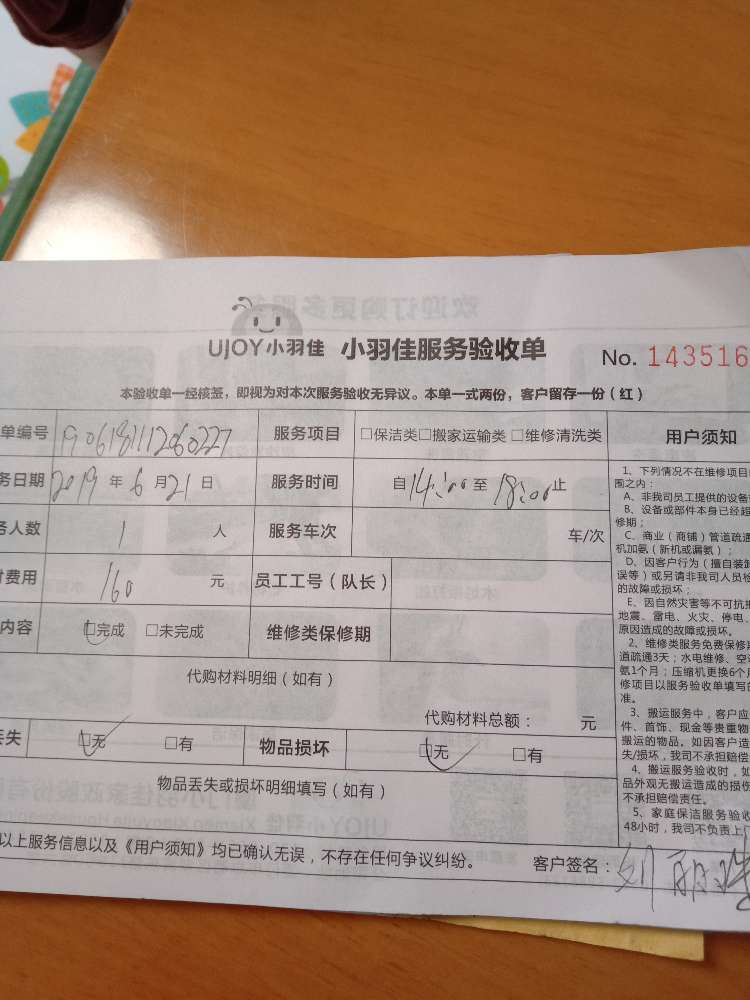 UJOY小羽佳 小羽佳服务验收单 No. 143516
本验收单一经核签，即视为对本次服务验收无异议。本单一式两份，客户留存一份（红）
单编号 190618111260227 服务项目 □保洁类□搬家运输类 □维修清洗类
务日期 2019 年 6 月 21 日 服务时间 自 14:00 至 18:00 止
务人数 1 人 服务车次 车/次
付费用 160 元 员工工号（队长）
内容 □完成 □未完成 维修类保修期
代购材料明细（如有）
代购材料总额： 元
丢失 □无 □有 物品损坏 □无 □有
物品丢失或损坏明细填写（如有）
以上服务信息以及《用户须知》均已确认无误，不存在任何争议纠纷。 客户签名：刘丽
用户须知
1、下列情况不在维修项目
围之内：
A、非我司员工提供的设备
B、设备或部件本身已经超
修期；
C、商业（商铺）管道疏通
机加氨（新机或漏氨）；
D、因客户行为（擅自装卸
误等）或另请非我司人员检
的故障或损坏；
E、因自然灾害等不可抗
地震、雷电、火灾、停电、
原因造成的故障或损坏。
2、维修类服务免费保修
道疏通3天；水电维修、空
氨1个月；压缩机更换6个月
修项目以服务验收单填写的
准。
3、搬运服务中，客户应
件、首饰、现金等贵重物
搬运的物品。如因客户造
失/损坏，我司不承担赔偿
4、搬运服务验收时，如
品外观无搬运造成的损伤
不承担赔偿责任。
5、家庭保洁服务验收
48小时，我司不负责上